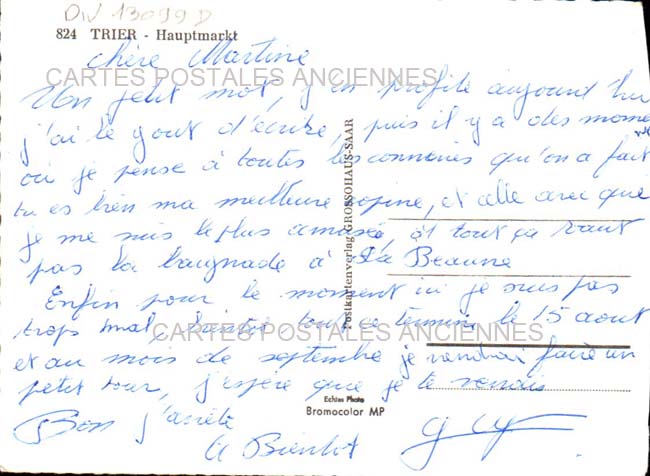 DIV 13099 D
824 TRIER - Hauptmarkt
chère Martine
CARTES POSTALES ANCIENNES
Un petit mot, j'en profite aujourd'hui
j'ai le gout d'écrire, puis il y a des moments
où je pense à toutes les conneries qu'on a fait
tu es bien ma meilleure copine, et celle avec qui
je me suis le plus amusée, et tout ça vaut
pas la baignade à la Beaune
Enfin pour le moment ici je suis pas
trops mal, tout ce termine le 15 aout
CARTES POSTALES ANCIENNES
et au mois de septembre je viendrai faire un
petit tour, j'espère que je te verrais
Bon j'arrête
A Bientot
Postkartenverlag GROSSOHAUS-SAAR
Echtes Photo
Bromocolor MP